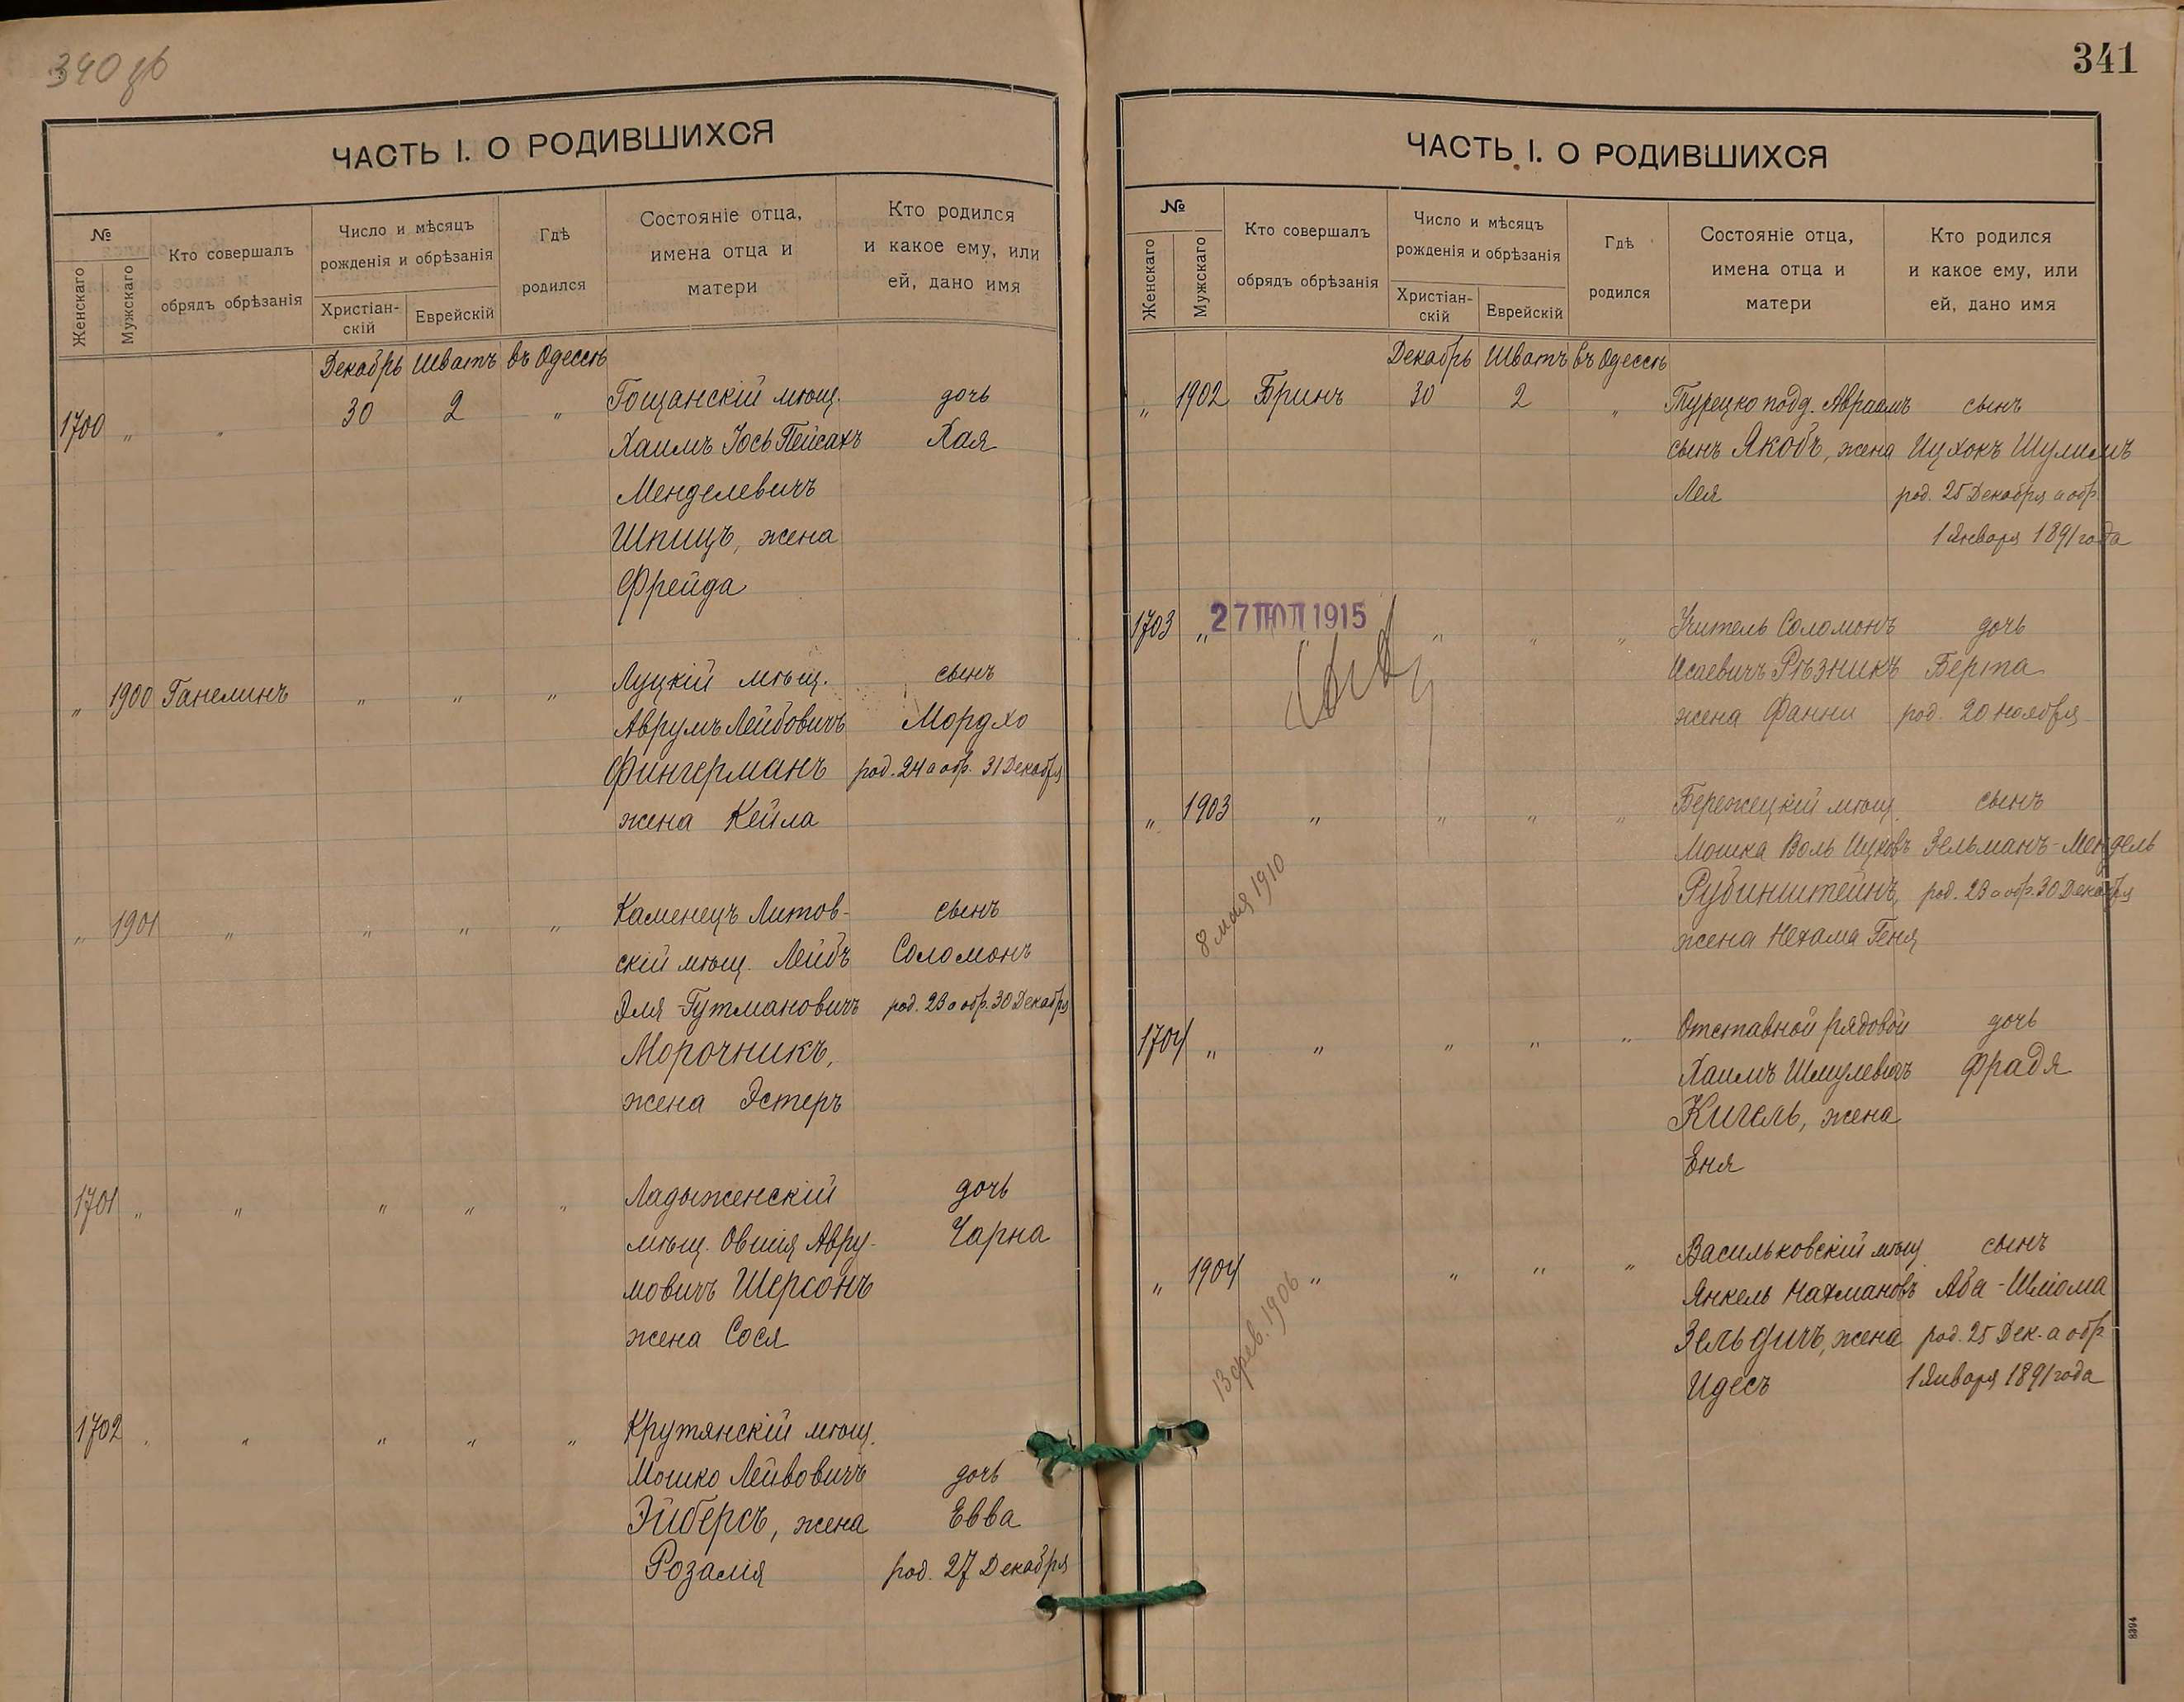 340 об
ЧАСТЬ I. О РОДИВШИХСЯ
№
Женскаго
Мужскаго
Кто совершалъ
обрядъ обрѣзанія
Число и мѣсяцъ
рожденія и обрѣзанія
Христіан-
скій
Еврейскій
Гдѣ
родился
Состояніе отца,
имена отца и
матери
Кто родился
и какое ему, или
ей, дано имя
Декабрь Шватъ въ Одессѣ
1700 " " 30 2 " Гощанскій мѣщ. дочь
Хаимъ Іось Пейсахъ Хая
Менделевичъ
Шпицъ, жена
Фрейда
" 1900 Ганелинъ " " " Луцкій мѣщ. сынъ
Аврумъ Лейбовичъ Мордхо
Фингерманъ род. 24 а обр. 31 Декабря
жена Кейла
" 1901 " " " " Каменецъ Литов- сынъ
скій мѣщ. Лейбъ Соломонъ
Эля-Гутмановичъ род. 23 а обр. 30 Декабря
Морочникъ,
жена Эстеръ
1701 " " " " " Ладыженскій дочь
мѣщ. Овшія Авру- Чарна
мовичъ Шерсонъ
жена Сося
1702 " " " " " Крутянскій мѣщ.
Мошко Лейвовичъ дочь
Эйберсъ, жена Евва
Розалія род. 27 Декабря
341
ЧАСТЬ I. О РОДИВШИХСЯ
№
Женскаго
Мужскаго
Кто совершалъ
обрядъ обрѣзанія
Число и мѣсяцъ
рожденія и обрѣзанія
Христіан-
скій
Еврейскій
Гдѣ
родился
Состояніе отца,
имена отца и
матери
Кто родился
и какое ему, или
ей, дано имя
Декабрь Шватъ въ Одессѣ
" 1902 Бринъ 30 2 " Турецко подд. Авраамъ сынъ
сынъ Якобъ, жена Ицхокъ Шулимъ
Лея род. 25 Декабря а обр.
1 Января 1891 года
27 1915
1703 " " " " Учитель Соломонъ дочь
Исаевичъ Рѣзникъ Берта
жена Фанни род. 20 Ноября
" 1903 " " " " Бережецкій мѣщ. сынъ
Мошка Воль Ицковъ Зельманъ-Мендель
Рубинштейнъ, род. 23 а обр. 30 Декабря
жена Нехама Геня
8 мая 1910
1704 " " " " " Отставной рядовой дочь
Хаимъ Шмулевичъ Фрадя
Кигель, жена
Еня
" 1904 " " " " Васильковскій мѣщ. сынъ
Янкель Нахмановъ Аба-Шліома
Зельдичъ, жена род. 25 Дек. а обр.
Идесъ 1 Января 1891 года
13 фев. 1906
8394